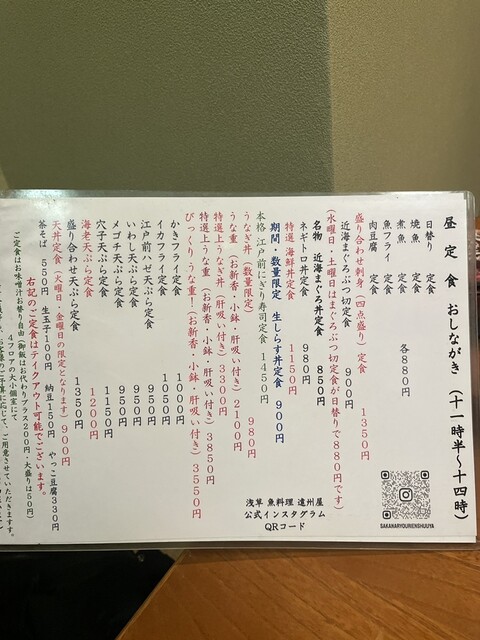 昼定食 おしながき (十一時半～十四時)
日替り 定食
焼魚 定食
煮魚 定食
魚フライ 定食
肉豆腐 定食
各880円
盛り合わせ刺身(四点盛り)定食 1350円
近海まぐろぶつ切定食 900円
(水曜日・土曜日はまぐろぶつ切定食が日替りで880円です)
名物 近海まぐろ丼定食 850円
ネギトロ丼定食 980円
特選 海鮮丼定食 1150円
期間・数量限定 生しらす丼定食 900円
本格 江戸前にぎり寿司定食 1450円
うなぎ丼(数量限定) 980円
うな重(お新香・小鉢・肝吸い付き)2100円
特選上うなぎ丼(肝吸い付き)3300円
特選上うな重(お新香・小鉢・肝吸い付き)3850円
びっくり・うな重!(お新香・小鉢・肝吸い付き)3550円
かきフライ定食 1000円
イカフライ定食 1050円
江戸前ハゼ天ぷら定食 950円
いわし天ぷら定食 950円
メゴチ天ぷら定食 950円
穴子天ぷら定食 1150円
海老天ぷら定食 1200円
盛り合わせ天ぷら定食 1350円
天丼定食(火曜日・金曜日の限定となります)900円
茶そば 550円 生玉子100円 納豆150円 やっこ豆腐330円
右記のご定食はテイクアウト可能でございます。
ご定食はお味噌汁お替り自由(御飯はお代わりプラス200円・大盛りは50円)
4フロアの大小個室にて
ご用意させていただきます。
浅草 魚料理 遠州屋
公式インスタグラム
QRコード
SAKANARYOURIENSHUUYA